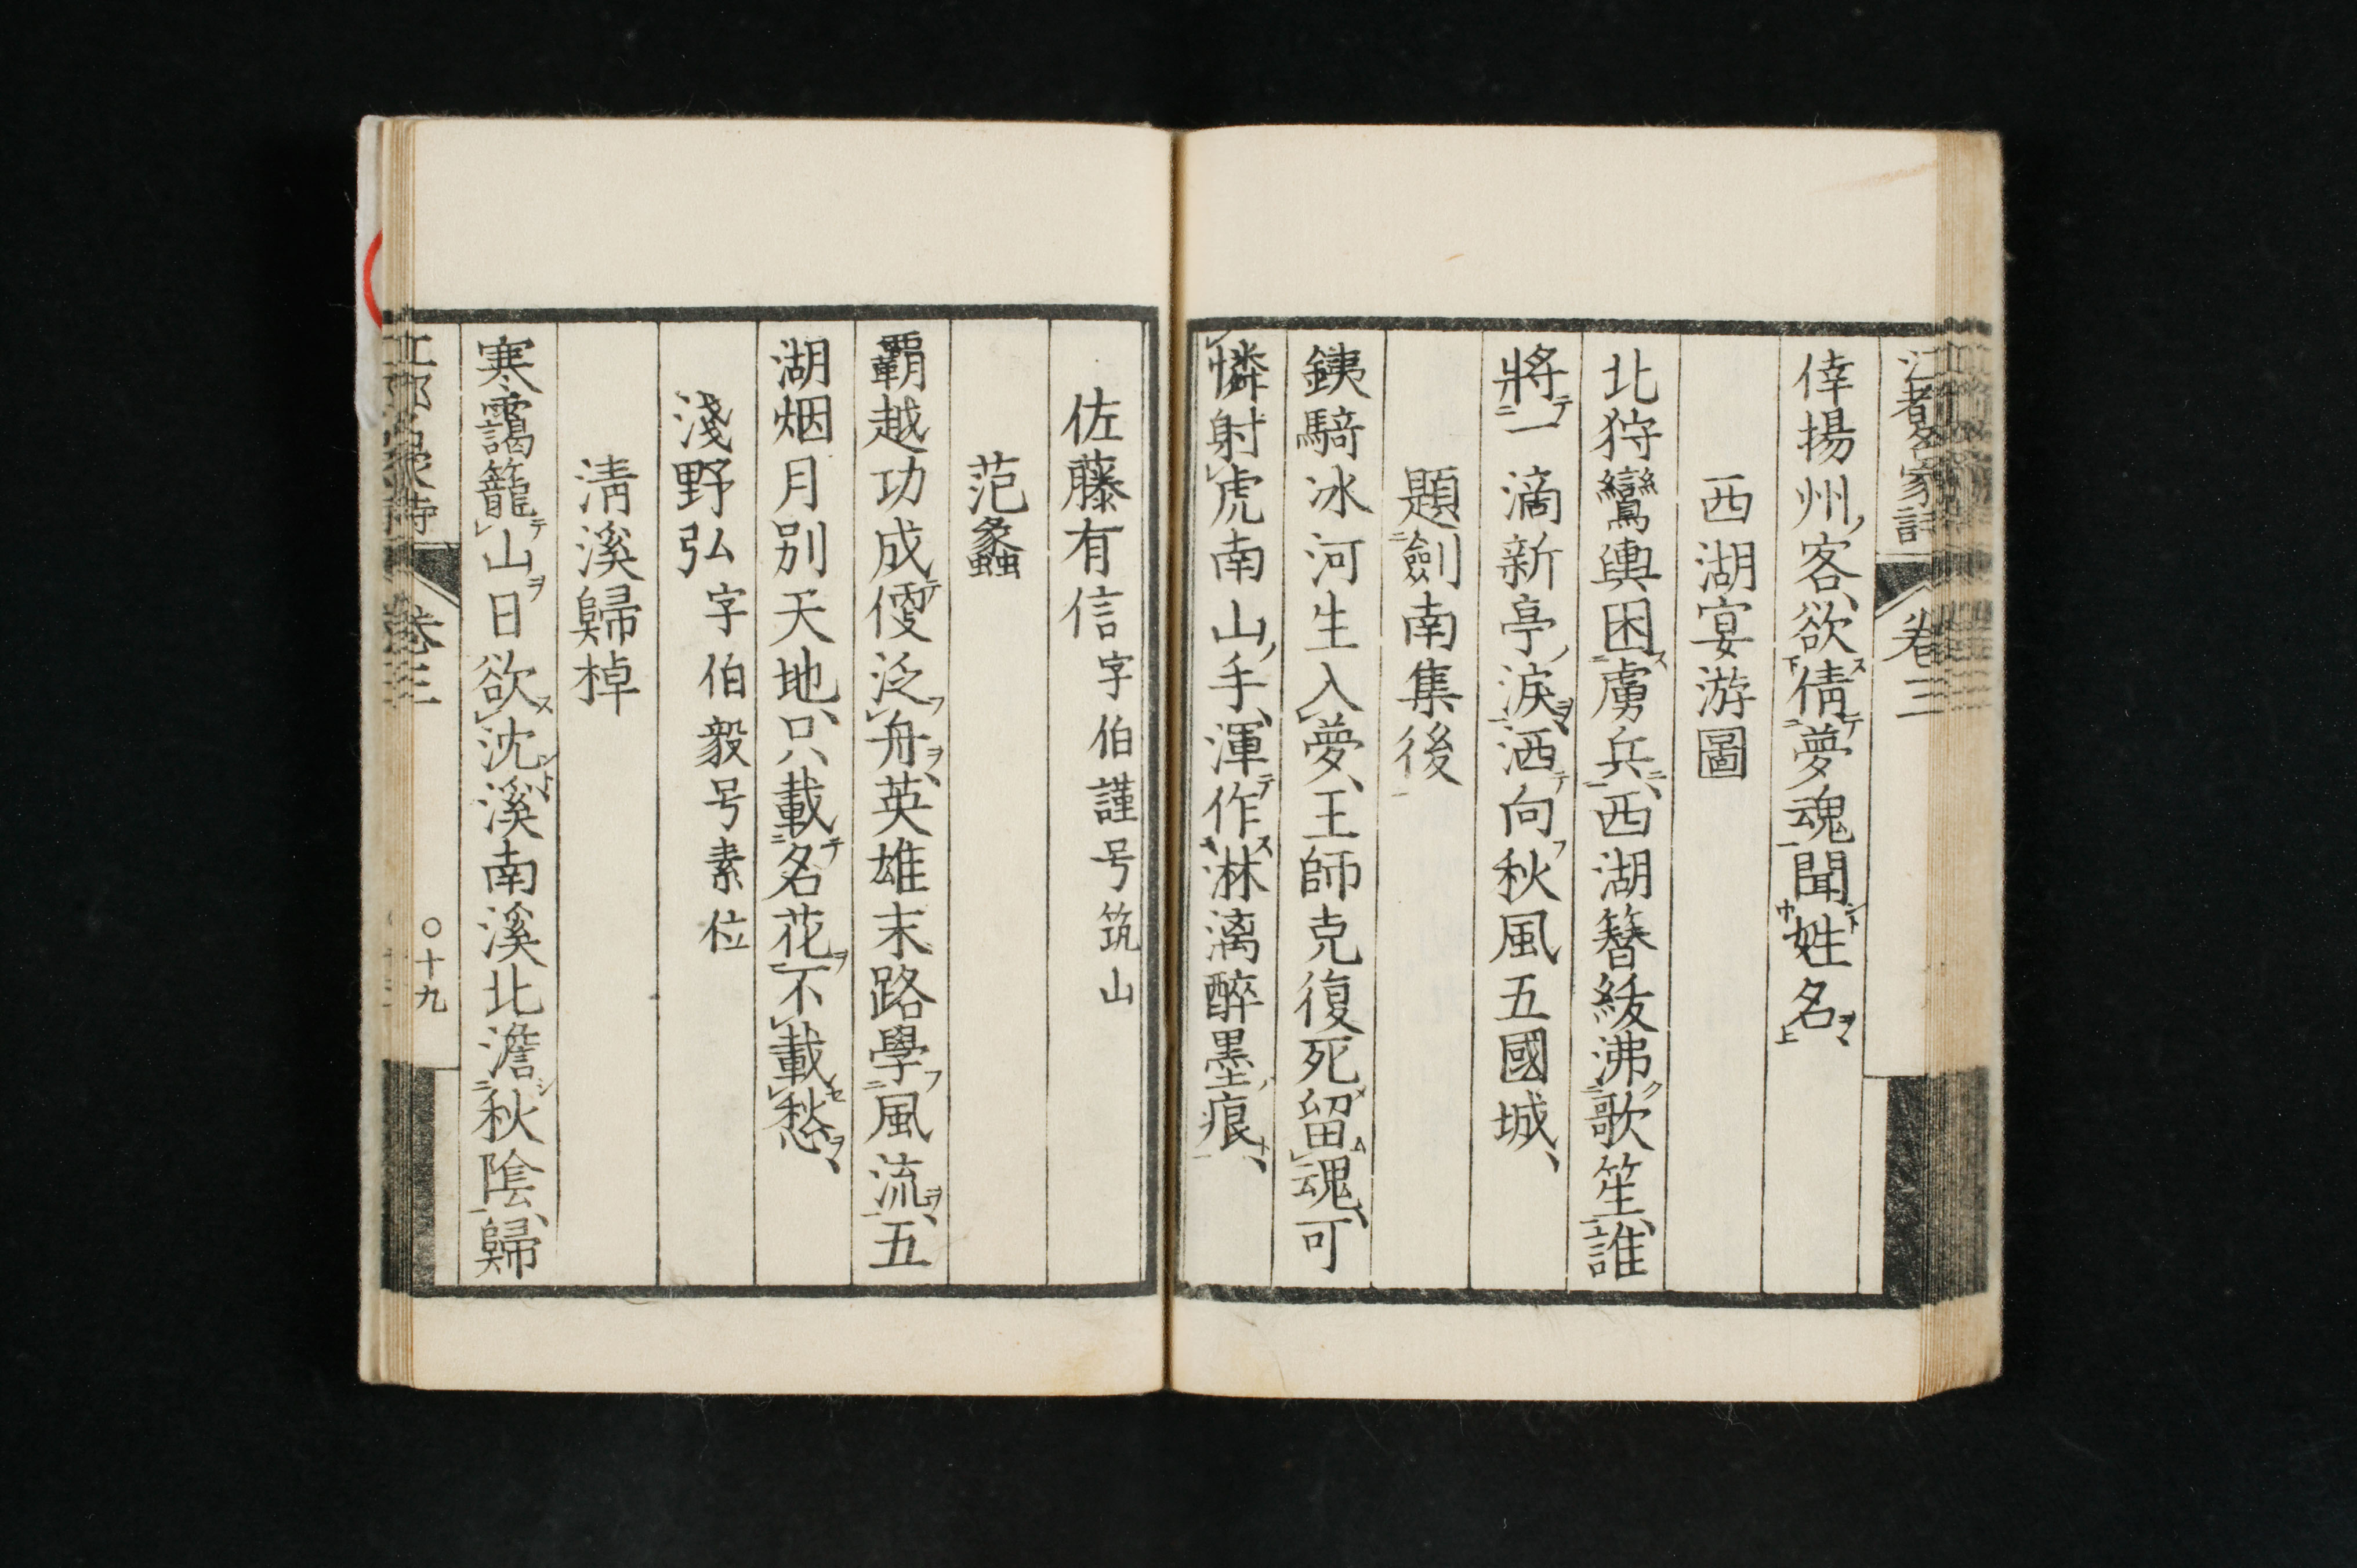 倖揚州客欲倩夢魂聞姓名
西湖宴游圖
北狩鸞輿困虜兵西湖簪紱沸歌笙誰
將一滴新亭淚洒向秋風五國城
題劍南集後
銕騎冰河生入夢王師克復死留魂可
憐射虎南山手渾作淋漓醉墨痕
佐藤有信字伯謹号筑山
范蠡
覇越功成便泛舟英雄末路學風流五
湖烟月別天地只載名花不載愁
淺野弘字伯毅号素位
淸溪歸棹
寒靄籠山日欲沈溪南溪北澹秋陰歸
卷三
〇十九